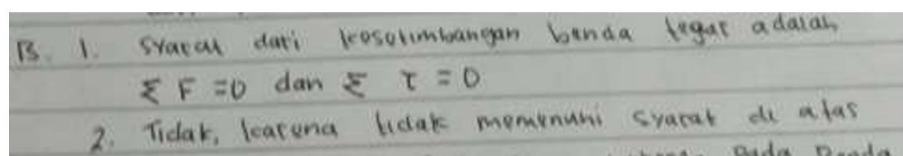 B. 1. Syarat dari kesetimbangan benda tegar adalah
Σ F = 0 dan Σ τ = 0
2. Tidak, karena tidak memenuhi syarat di atas
pada